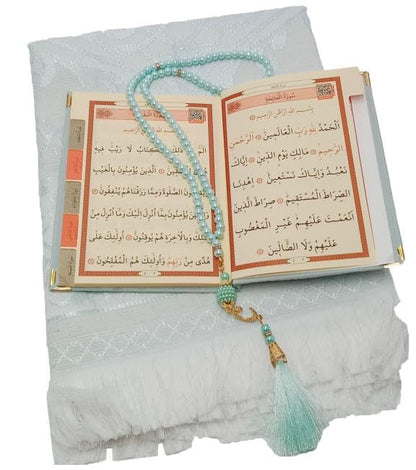 سُورَةُ الْفَاتِحَةِ
بِسْمِ اللَّهِ الرَّحْمٰنِ الرَّحِيمِ
اَلْحَمْدُ لِلّٰهِ رَبِّ الْعَالَمِينَ الرَّحْمٰنِ
الرَّحِيمِ مَالِكِ يَوْمِ الدِّينِ اِيَّاكَ
نَعْبُدُ وَاِيَّاكَ نَسْتَعِينُ اِهْدِنَا
الصِّرَاطَ الْمُسْتَقِيمَ صِرَاطَ الَّذِينَ
اَنْعَمْتَ عَلَيْهِمْ غَيْرِ الْمَغْضُوبِ
عَلَيْهِمْ وَلَا الضَّالِّينَ
الم الْكِتَابُ لَا رَيْبَ فِيهِ
يُؤْمِنُونَ بِالْغَيْبِ
الصَّلٰوةَ وَمِمَّا رَزَقْنَاهُمْ يُنْفِقُونَ
يُؤْمِنُونَ بِمَا اُنْزِلَ اِلَيْكَ وَمَا اُنْزِلَ مِنْ
قَبْلِكَ وَبِالْاٰخِرَةِ هُمْ يُوقِنُونَ اُولٰئِكَ عَلٰى
هُدًى مِنْ رَبِّهِمْ وَاُولٰئِكَ هُمُ الْمُفْلِحُونَ